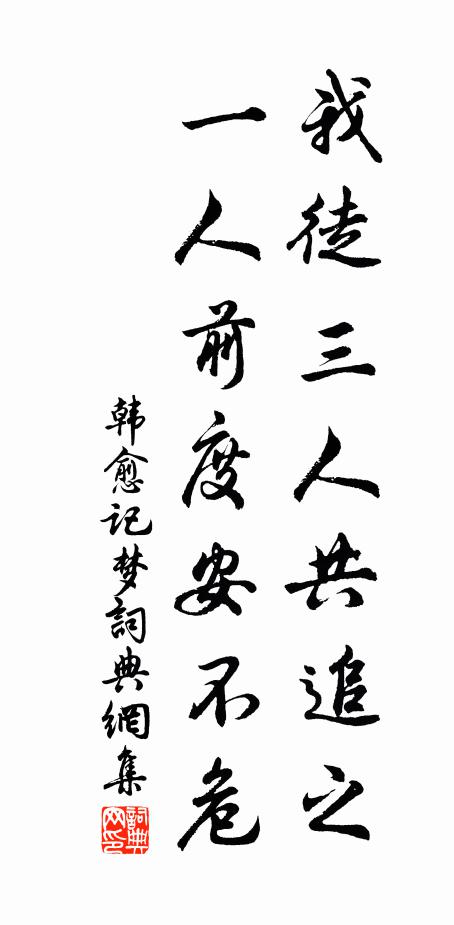 我徒三人共追之
一人前度安不危
韩愈记梦詞典網集
詞典网印